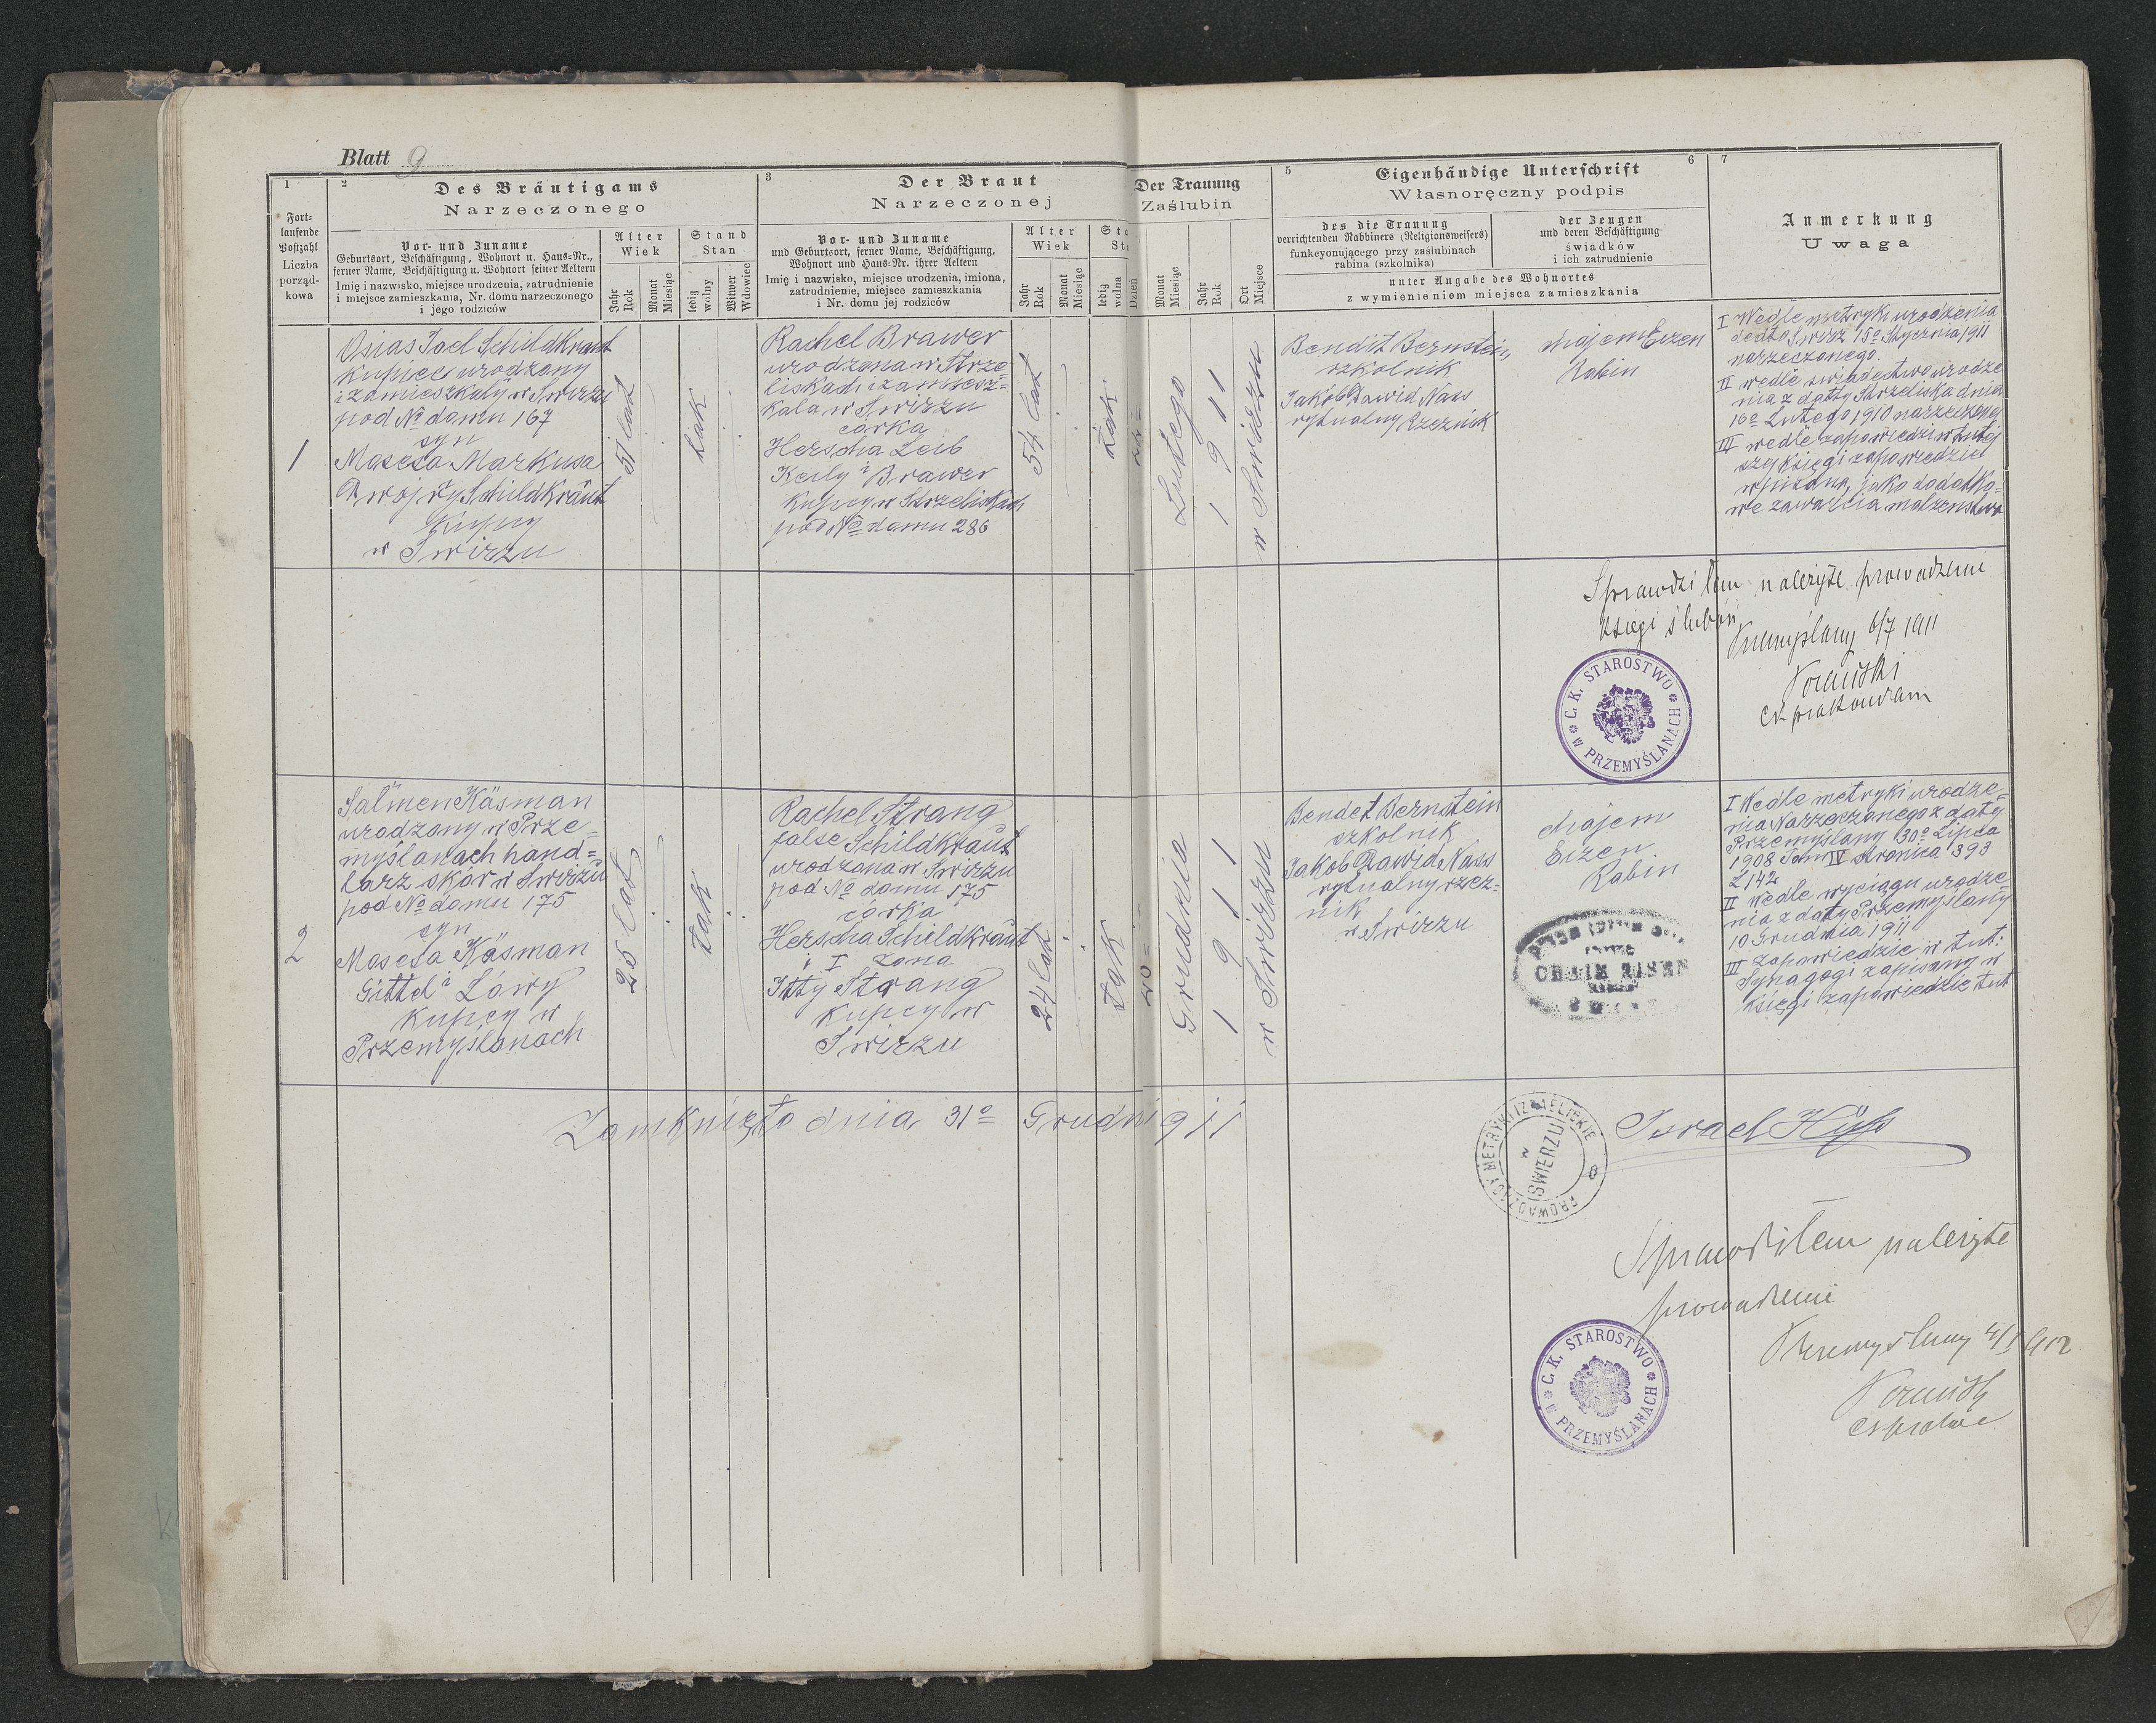 Blatt 9
1
2
Des Bräutigams
Narzeczonego
3
Der Braut
Narzeczonej
Der Trauung
Zaślubin
5
Eigenhändige Unterschrift
Własnoręczny podpis
6
7
Anmerkung
Uwaga
Fort-
laufende
Postzahl
Liczba
porząd-
kowa
Vor- und Zuname
Geburtsort, Beschäftigung, Wohnort u. Haus-Nr.,
ferner Name, Beschäftigung u. Wohnort seiner Aeltern
Imię i nazwisko, miejsce urodzenia, zatrudnienie
i miejsce zamieszkania, Nr. domu narzeczonego
i jego rodziców
Alter
Wiek
Jahr
Rok
Monat
Miesiąc
Stand
Stan
ledig
wolny
Witwer
Wdowiec
Vor- und Zuname
und Geburtsort, ferner Name, Beschäftigung,
Wohnort und Haus-Nr. ihrer Aeltern
Imię i nazwisko, miejsce urodzenia, imiona,
zatrudnienie, miejsce zamieszkania
i Nr. domu jej rodziców
Alter
Wiek
Jahr
Rok
Monat
Miesiąc
ledig
wolna
Dzień
Monat
Miesiąc
Jahr
Rok
Ort
Miejsce
des die Trauung
verrichtenden Rabbiners (Religionsweisers)
funkcyonującego przy zaślubinach
rabina (szkolnika)
der Zeugen
und deren Beschäftigung
świadków
i ich zatrudnienie
unter Angabe des Wohnortes
z wymienieniem miejsca zamieszkania
1
Osias Joel Schildkraut
kupiec urodzony
i zamieszkały w Swirzu
pod No domu 167
syn
Mosesa Markusa
Dwojry Schildkraut
Kupcy
w Swirzu
51 lat
tak
Rachel Brawer
urodzona w Strze=
liskach i zamiesz=
kała w Swirzu
córka
Herscha Leib
Keily i Brawer
Kupcy w Strzeliskach
pod No domu 286
54 lat
tak
Lutego
1911
w Swirzu
Bendit Bernstein
szkolnik
Jakób Dawid Nass
rytualny Rzeźnik
Chajem Eizen
Rabin
I Wedle metryki urodzenia
Swirz 15o Stycznia 1911
narzeczonego.
II wedle świadectwa urodze
nia z daty Strzeliska dnia
16o Lutego 1910 narzeczonej
III wedle zapowiedzi w tutej
szej księgi zapowiedzie
wpisana, jako dodatko=
we zawarcia małżenstwa
Sprawdziłem należyte prowadzenie
księgi ślubów
Przemyślany 6/7 1911
C. K. STAROSTWO
W PRZEMYŚLANACH
2
Salmen Käsman
urodzony w Prze=
myślanach hand=
larz skór w Swirzu
pod No domu 175
syn
Mosesa Käsman
Gittel i Löwy
Kupcy w
Przemyślanach
25 lat
tak
Rachel Strang
false Schildkraut
urodzona w Swirzu
pod No domu 175
córka
Herscha Schildkraut
i I żona
Itty Strang
Kupcy w
Swirzu
24 lat
tak
20
Grudnia
1911
w Swirzu
Bendet Bernstein
szkolnik
Jakób Dawid Nass
rytualny rzeź=
nik
w Swirzu
Chajem
Eizen
Rabin
I Wedle metryki urodze=
nia Narzeczonego z daty
Przemyślany 30o Lipca
1908 Tom IV stronica 393
L 142
II Wedle wyciągu urodze=
nia z daty Przemyślany
10 Grudnia 1911
III zapowiedzie w tut:
Synagogi zapisany w
księgi zapowiedzie tut
Zamknięto dnia 31o Grudni 911
PROWADZĄCY METRYKI IZRAELICKIE
w
ŚWIERZU
Israel Hüss
Sprawdziłem należyte
prowadzenie
Przemyślany 4/1 912
C. K. STAROSTWO
W PRZEMYŚLANACH